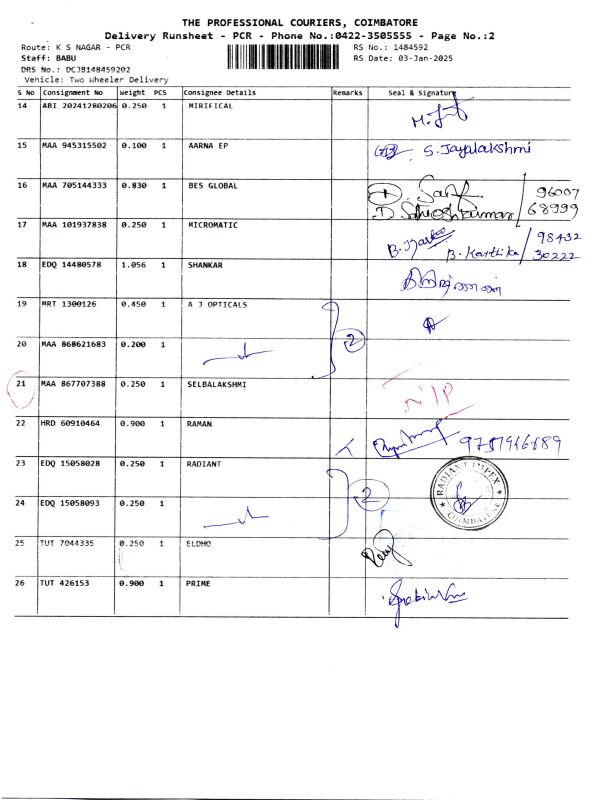 THE PROFESSIONAL COURIERS, COIMBATORE
Delivery Runsheet - PCR - Phone No.:0422-3505555 - Page No.:2
Route: K S NAGAR - PCR RS No.: 1484592
Staff: BABU RS Date: 03-Jan-2025
DRS No.: DCJB148459202
Vehicle: Two Wheeler Delivery
S No Consignment No Weight PCS Consignee Details Remarks Seal & Signature
14 ABI 20241280206 0.250 1 MIRIFICAL
15 MAA 945315502 0.100 1 AARNA EP S. Jayalakshmi
16 MAA 705144333 0.830 1 BES GLOBAL 96007
D Sathoshkumar 68999
17 MAA 101937838 0.250 1 MICROMATIC 98432
B. Karthika 30222
18 EDQ 14480578 1.056 1 SHANKAR
19 MRT 1300126 0.450 1 A J OPTICALS
20 MAA 868621683 0.200 1 2
21 MAA 867707388 0.250 1 SELBALAKSHMI N/P
22 HRD 60910464 0.900 1 RAMAN
23 EDQ 15058028 0.250 1 RADIANT RADIANT IMPEX
24 EDQ 15058093 0.250 1 2 COIMBATORE
25 TUT 7044335 0.250 1 ELDHO
26 TUT 426153 0.900 1 PRIME